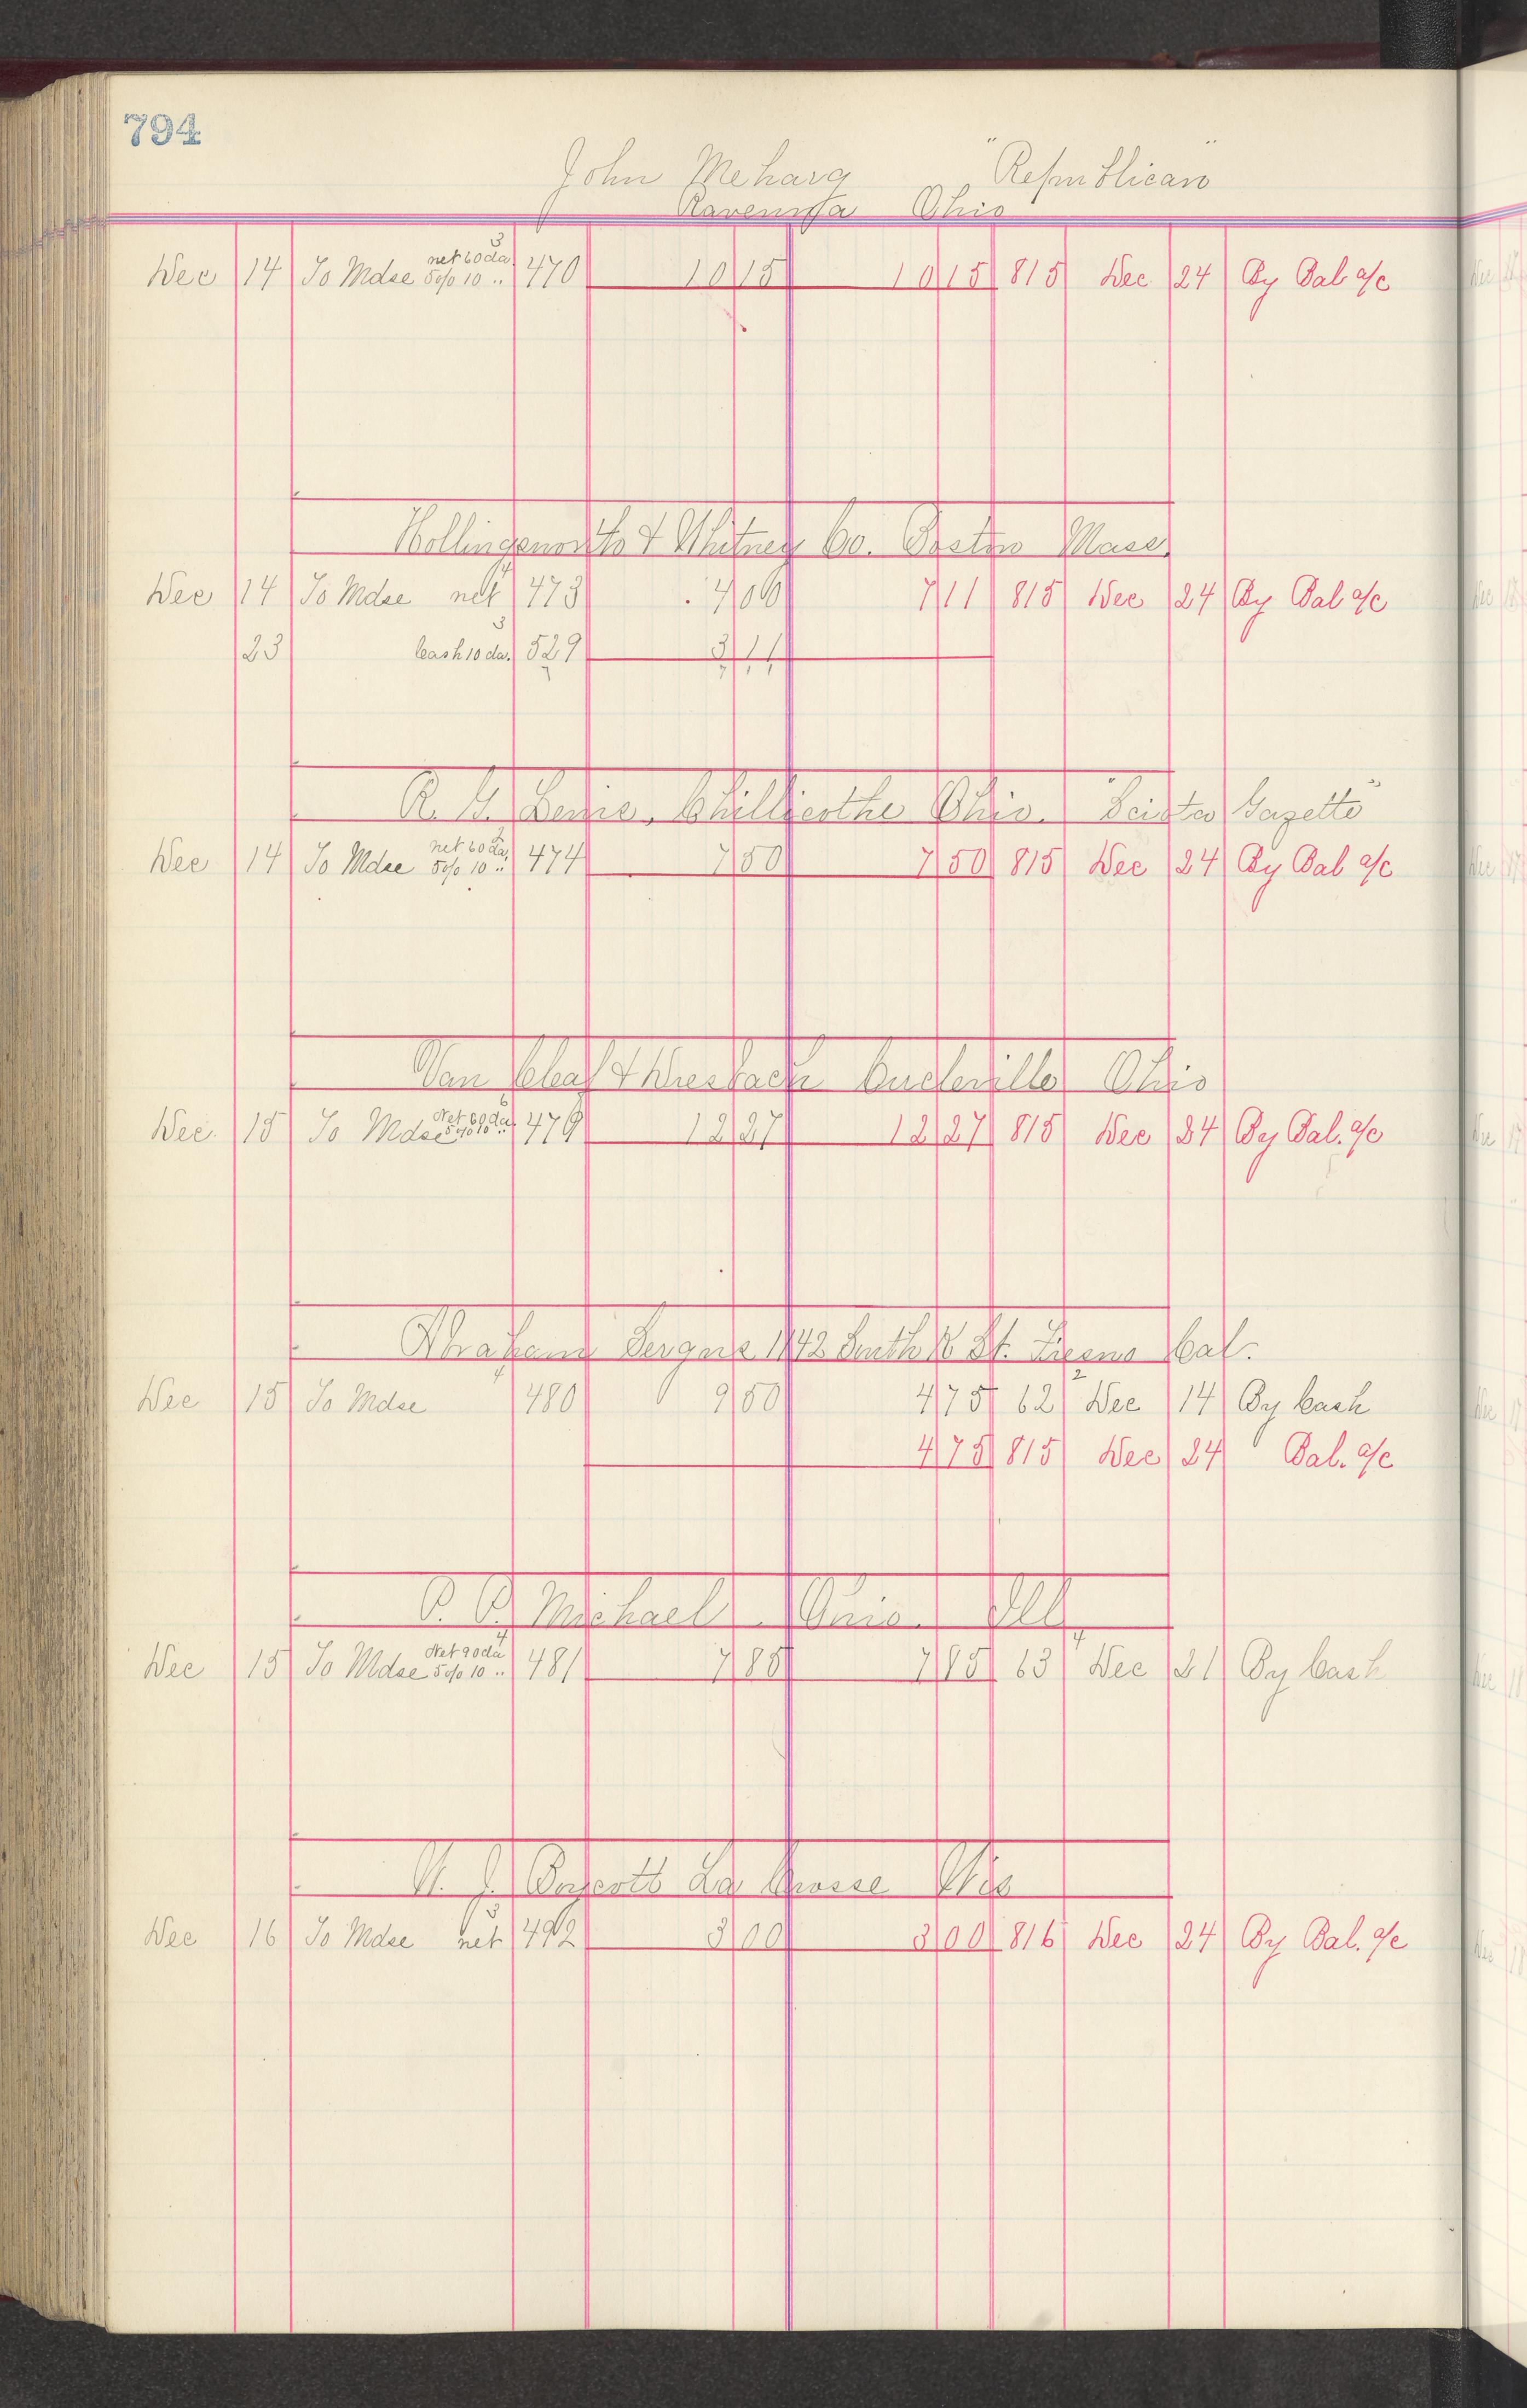 794
John Meharg "Republican"
Ravenna Ohio
Dec 14 To Mdse net 60 da 5% 10 .. 3 470 10 15 10 15 815 Dec 24 By Bal a/c
Hollingsworth & Whitney Co. Boston Mass
Dec 14 To Mdse net 4 473 4 00 7 11 815 Dec 24 By Bal a/c
23 Cash 10 da. 3 529 3 11
R. G. Chillicothe Ohio. Gazette"
Dec 14 To Mdse net 60 da 5% 10 .. 474 7 50 7 50 815 Dec 24 By Bal a/c
Van Cleaf & Ohio
Dec. 15 To Mdse Net 60 da 5% 10 .. 479 12 27 12 27 815 Dec 24 By Bal. a/c
Abraham 1142 South K St. Fresno Cal.
Dec 15 To Mdse 4 480 9 50 4 75 62 2 Dec 14 By Cash
4 75 815 Dec 24 Bal. a/c
P. P. Michael Ohio. Ill
Dec 15 To Mdse Net 90 da 5% 10 .. 4 481 7 85 7 85 63 4 Dec 21 By Cash
Boycott La Crosse Wis
Dec 16 To Mdse net 3 492 3 00 3 00 816 Dec 24 By Bal. a/c